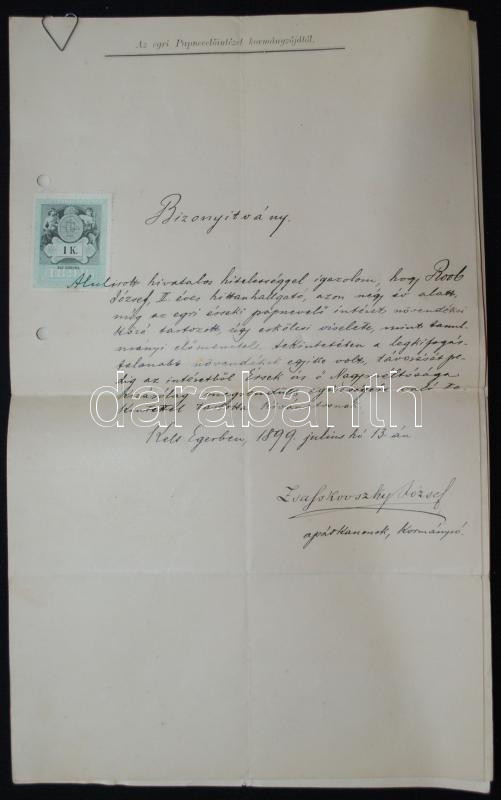 Az egri Papnevelőintézet kormányzójától.
1 K.
Bizonyitvány.
Alulirott hivatalos hitelességgel igazolom, hogy Roob
József, II. éves hittanhallgató, azon négy év alatt,
mig az egri érseki papnevelő intézet növendékei
közé tartozott, úgy erkölcsi viselete, mint tanul-
mányi előmenetele tekintetében a legkifogás-
talanabb növendékek egyike volt, távozását pe-
dig az intézetből Érsek úr ő Nagyméltósága
való te-
kintettel
darabanth
Kelt Egerben, 1899. július hó 13-án
Zsasskovszky József
apátkanonok, kormányzó.